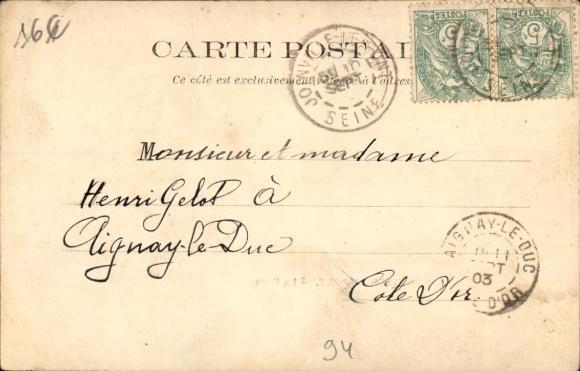 CARTE POSTALE
Ce côté est exclusivement réservé à l'adresse
JOINVILLE-LE-PONT
10
SEPT
SEINE
POSTES
5
POSTES
5
Monsieur et madame
Henri Gelot à
Aignay-le-Duc
Côte D'or.
AIGNAY-LE-DUC
11
SEPT
03
CÔTE D'OR
94